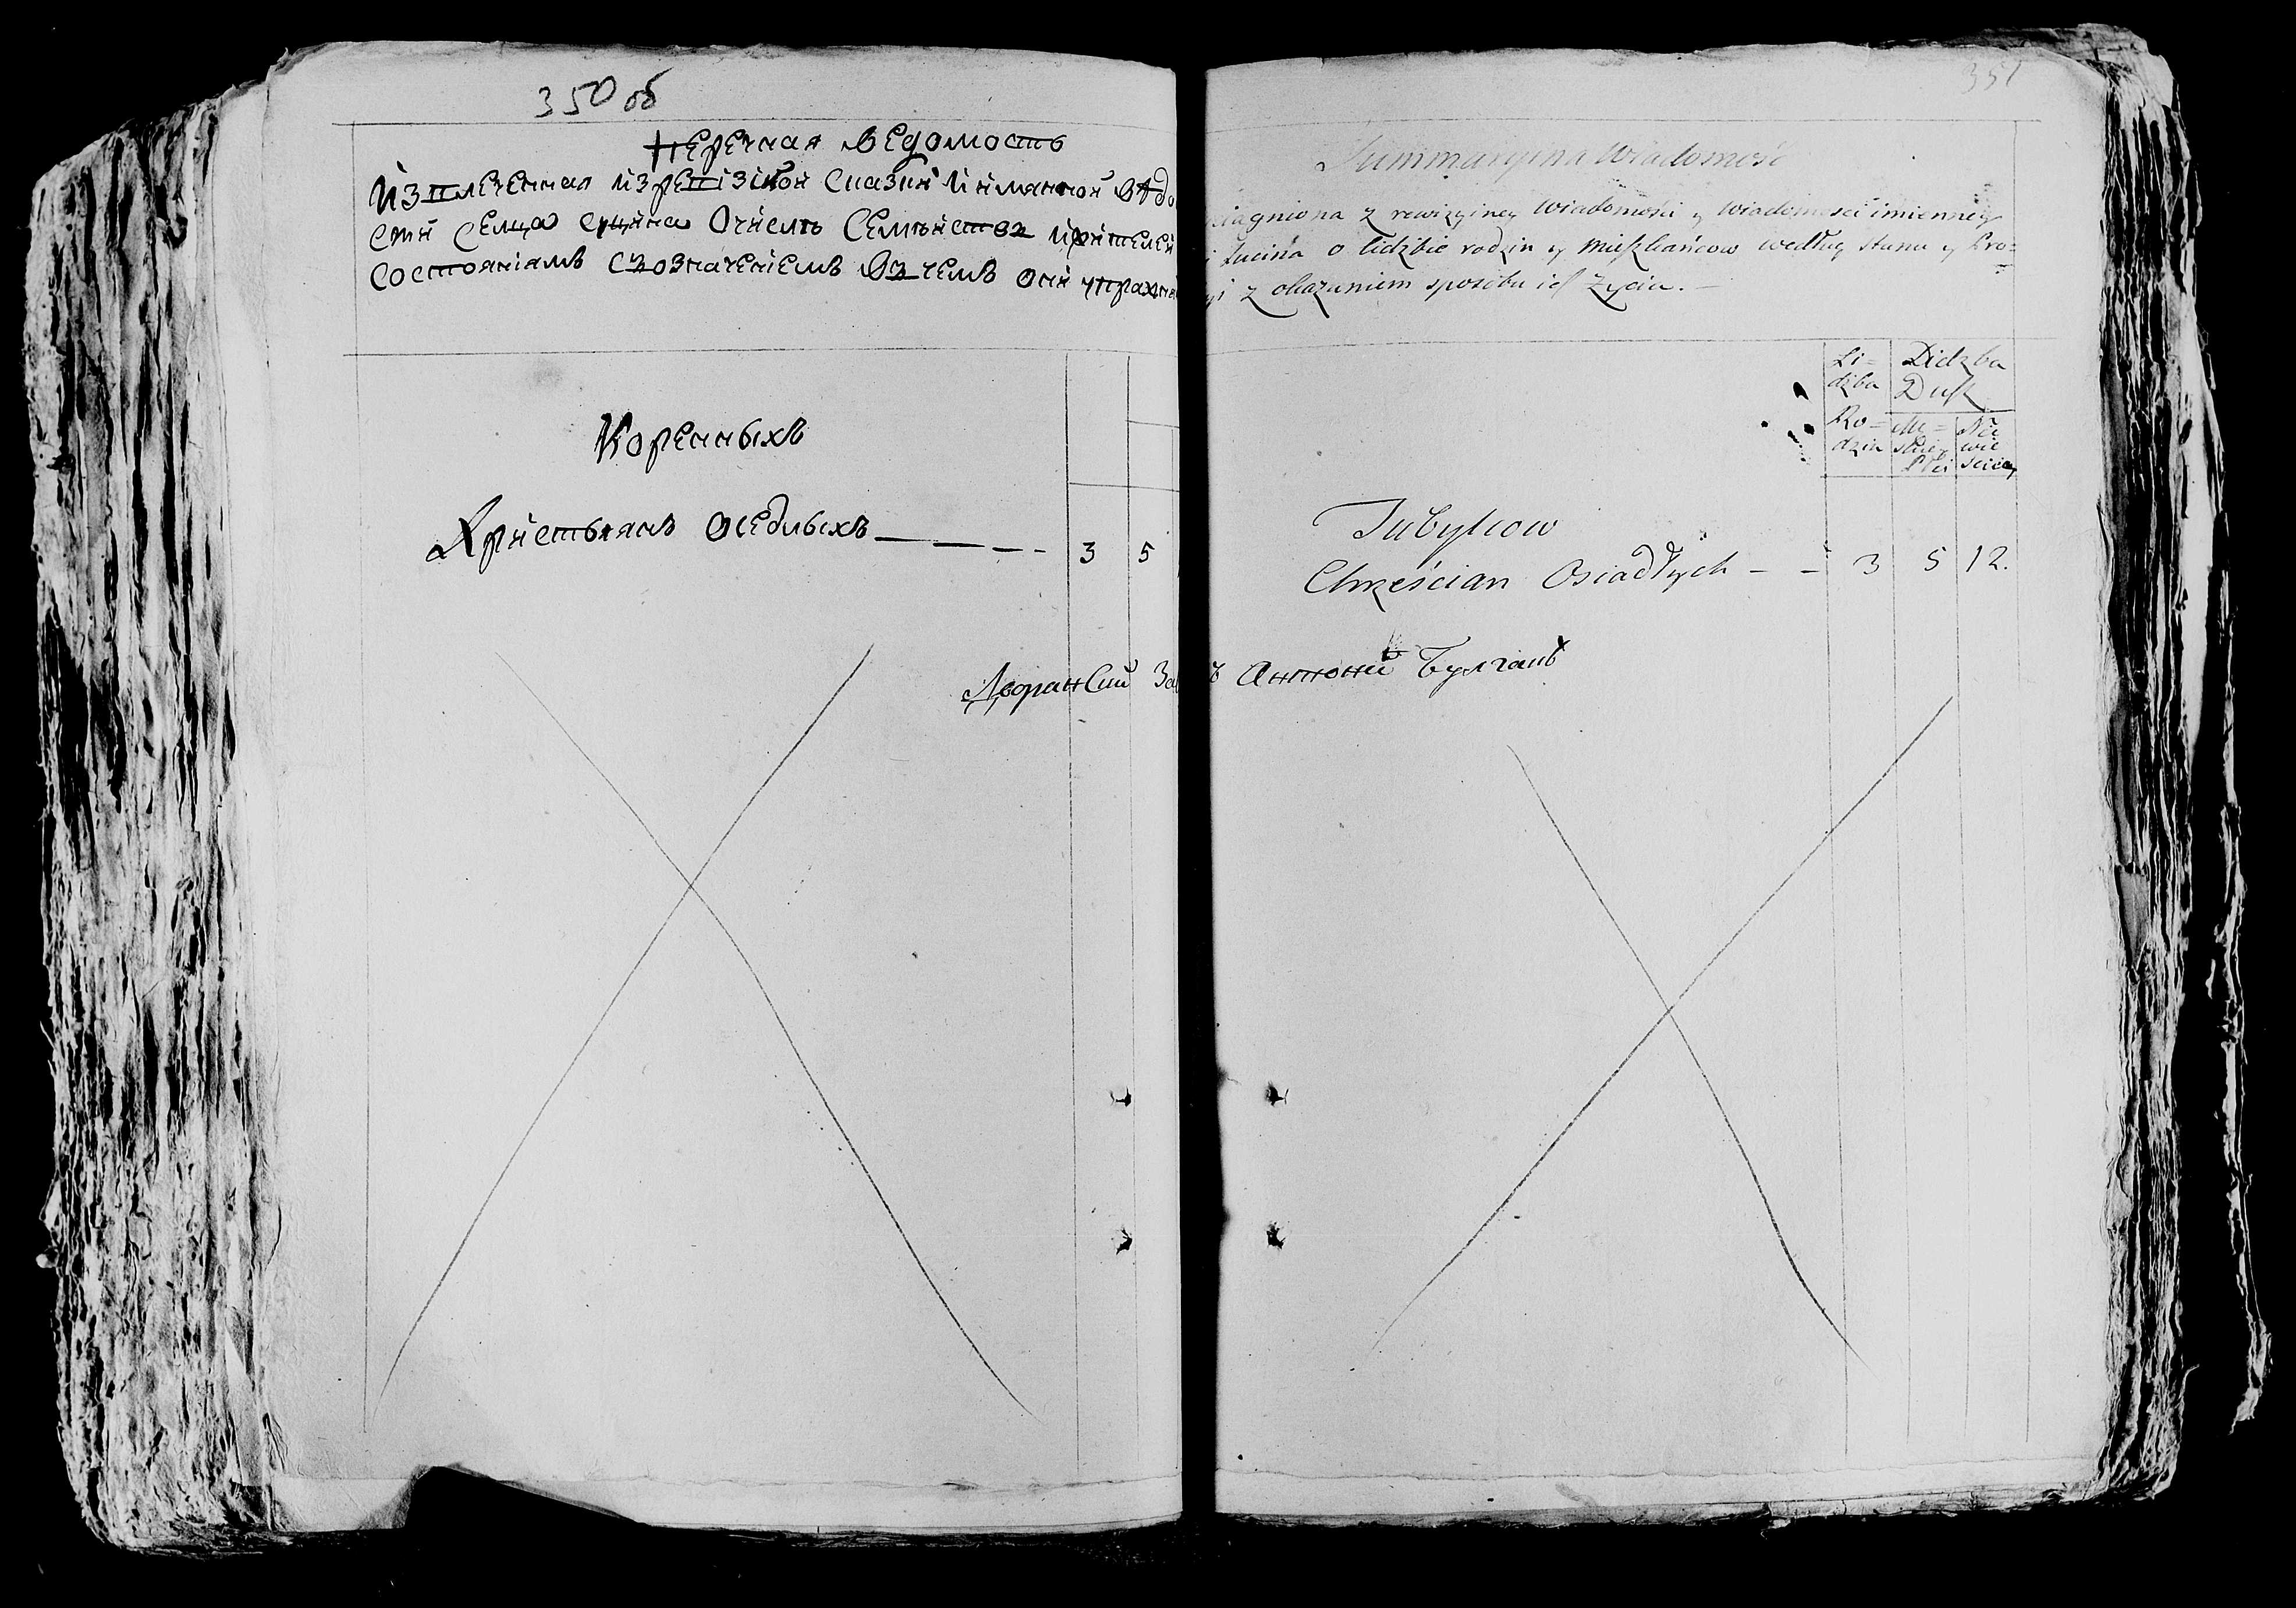 350 об
Перечная ведомость
Извлеченная из ревизской сказки и имянной ведо
сти селца Сущина о числе семейств и жителей
состояниямъ с означениемъ в чемъ они упражня
Коренныхъ
Христьянъ оседлыхъ — — — 3 5
Дворанский За
351
Summaryina Wiadomość
ciągniona z rewizyiney Wiadomości y Wiadomości imienney
Sucina o lidzbie rodzin y Mieszkańcow według stanu y Pro=
z okazaniem sposobu ich Życia. —
Li= dzba Ro= dzin
Lidzba Dusz
Mę= skiey Płci
Nie wie sciey
Tubylcow
Chrześcian Osiadłych — — 3 5 12.
ъ Антоний Булгакъ